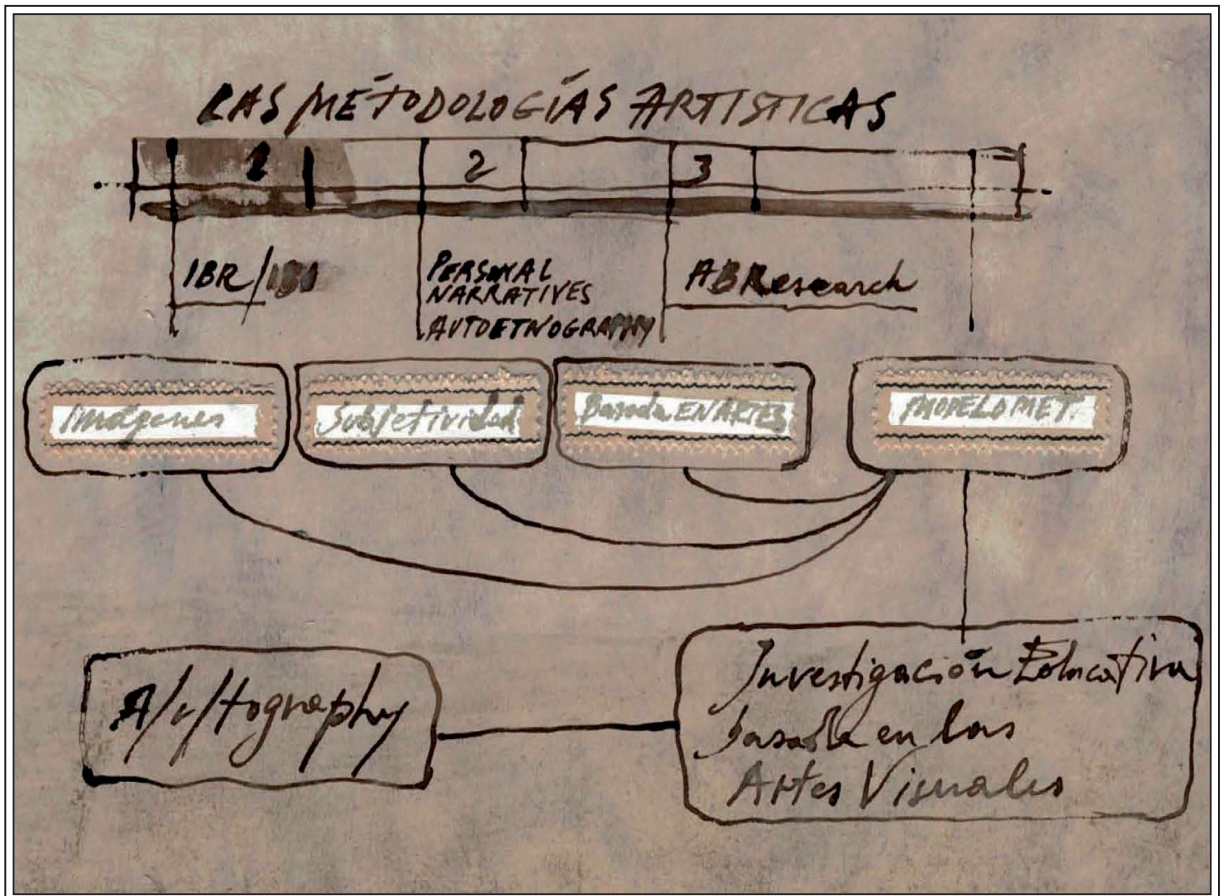 LAS METODOLOGÍAS ARTÍSTICAS
1 2 3
IBR/
PERSONAL
NARRATIVES
AUTOETNOGRAPHY
ABResearch
Imágenes
Subjetividad
Basada EN ARTES
MODELO MET.
A/r/tography
Investigación Educativa
basada en las
Artes Visuales